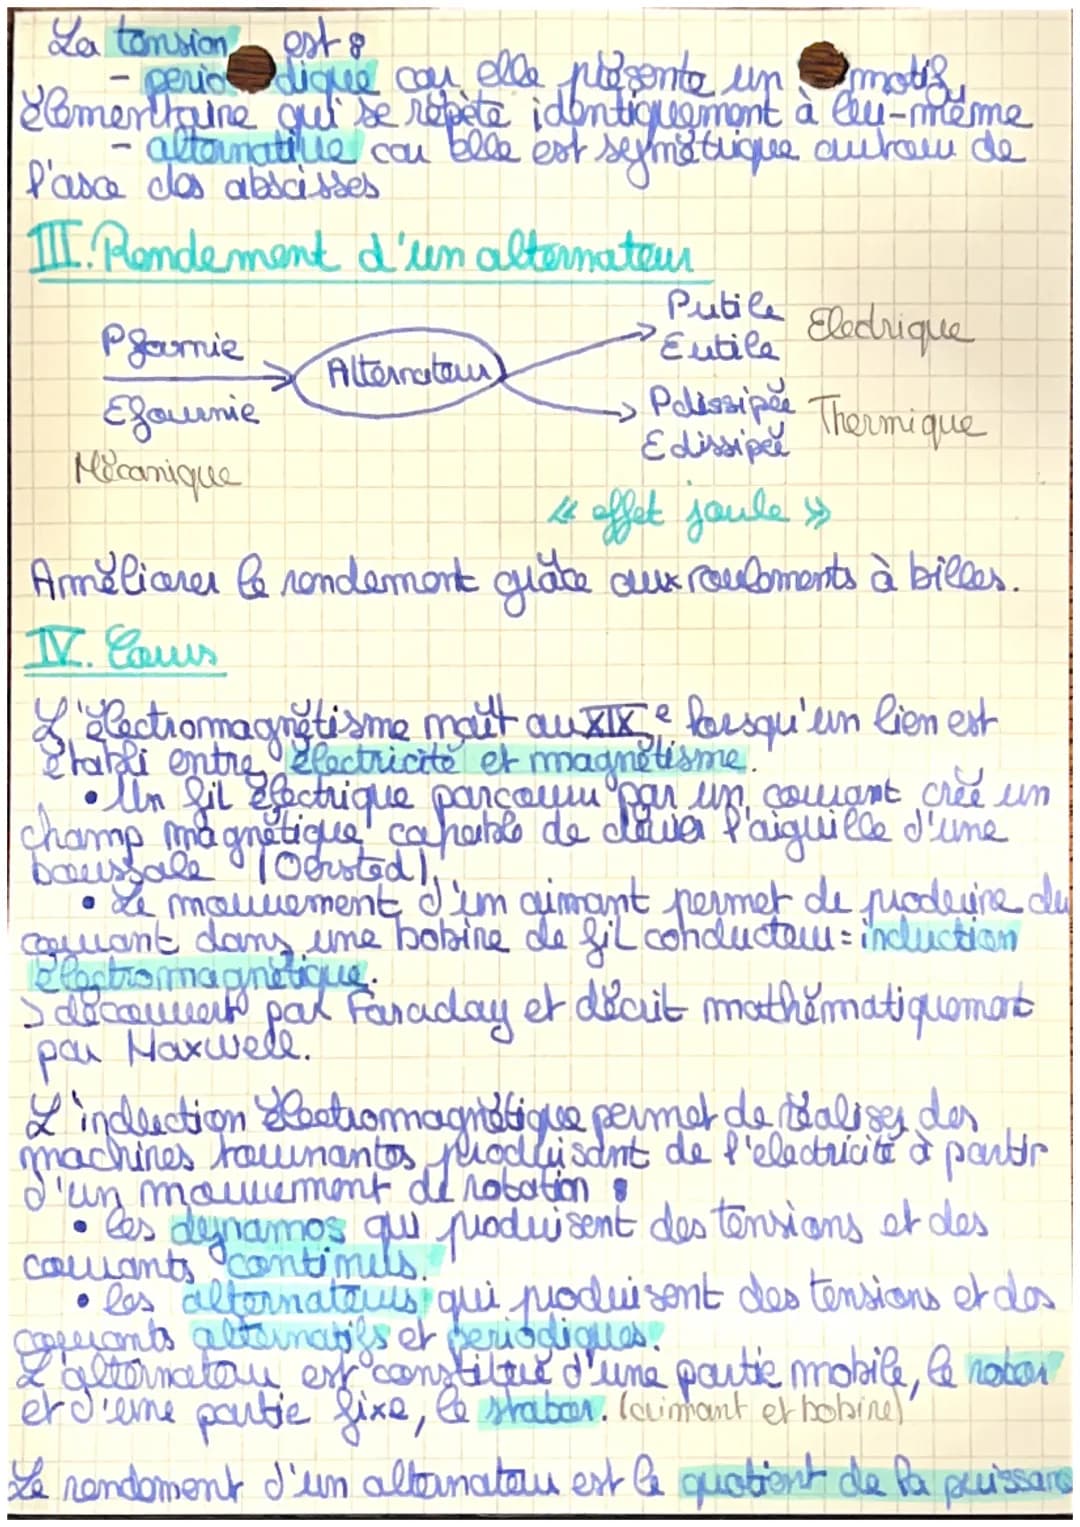 La tension est :
- périodique car elle présente un motif
élémentaire qui se répète identiquement à lui-même
- alternative car elle est symétrique autour de
l'axe des abscisses
III. Rendement d'un alternateur
Pfournie
Efournie
Mécanique
Alternateur
Putile
Eutile
Electrique
Pdissipée
Edissipée
Thermique
« effet joule »
Améliorer le rendement grâce aux roulements à billes.
IV. Cours
L'électromagnétisme naît au XIXe lorsqu'un lien est
établi entre électricité et magnétisme.
• Un fil électrique parcouru par un courant créé un
champ magnétique capable de dévier l'aiguille d'une
boussole (Oersted).
• Le mouvement d'un aimant permet de produire du
courant dans une bobine de fil conducteur = induction
électromagnétique.
> découvert par Faraday et décrit mathématiquement
par Maxwell.
L'induction électromagnétique permet de réaliser des
machines tournantes produisant de l'electricité à partir
d'un mouvement de rotation :
• les dynamos qui produisent des tensions et des
courants continus.
• les alternateurs qui produisent des tensions et des
courants alternatifs et periodiques.
L'alternateur est constitué d'une partie mobile, le rotor
et d'une partie fixe, le stator. (aimant et bobine)
Le rendement d'un alternateur est le quotient de la puissanc